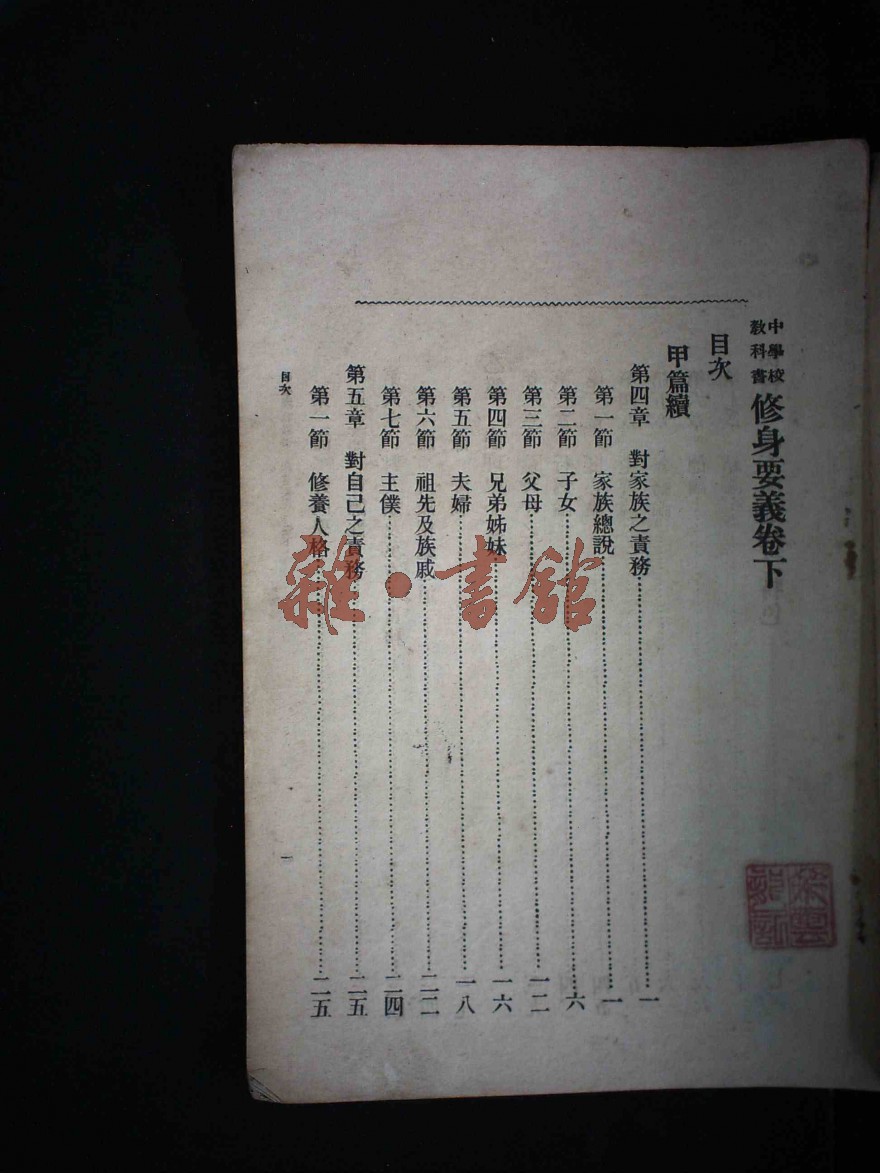 中學校
教科書
修身要義卷下
目次
甲篇續
第四章 對家族之責務……一
第一節 家族總說……一
第二節 子女……六
第三節 父母……一二
第四節 兄弟姊妹……一六
第五節 夫婦……一八
第六節 祖先及族戚……二二
第七節 主僕……二四
第五章 對自己之責務……二五
第一節 修養人格……二五
目次
一
雜·書館